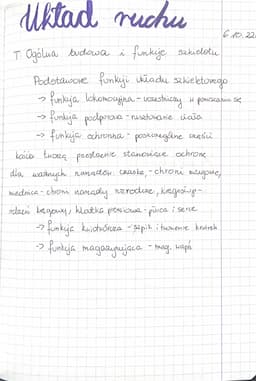 Układ ruchu
6.10.22
T: Ogólna budowa i funkcje szkieletu
Podstawowe funkcji układu szkieletowego
→ funkcja lokomocyjna - uczestniczy w poruszaniu się
→ funkcja podporowa - ciała
→ funkcja ochronna - poszczególne części
ciała tworzą przestrzenie stanowiące ochronę
dla ważnych narządów. czaszka - chroni mózgowie,
miednica - chroni narządy rozrodcze, kręgosłup -
rdzeń kręgowy, klatka piersiowa - płuca i serce
→ funkcja krwiotwórcza - szpik i tworzenie krwinek
→ funkcja magazynująca - mag. wapń